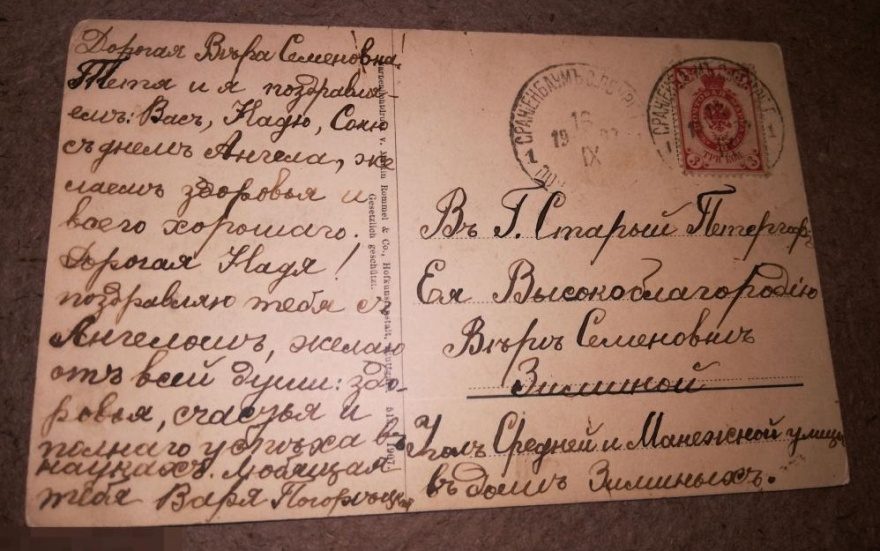 Дорогая Вѣра Семеновна!
Тетя и я поздравля-
емъ: Васъ, Надю, Соню
съ днемъ Ангела, же
лаемъ здоровья и
всего хорошаго.
Дорогая Надя!
поздравляю тебя съ
Ангеломъ, желаю
отъ всей души: здо-
ровья, счастья и
полнаго успѣха въ
наукахъ. Любящая
тебя Варя
Rommel & Co., Hofkunstanstalt,
Gesetzlich geschützt.
16
IX
1
ТРИ КОП.
3 3
Въ Г. Старый Петергоф
Ея Высокоблагородію
Вѣрѣ Семеновнѣ
Зиминой
Уголъ Средней и Манежной улицы
въ домѣ Зиминыхъ.